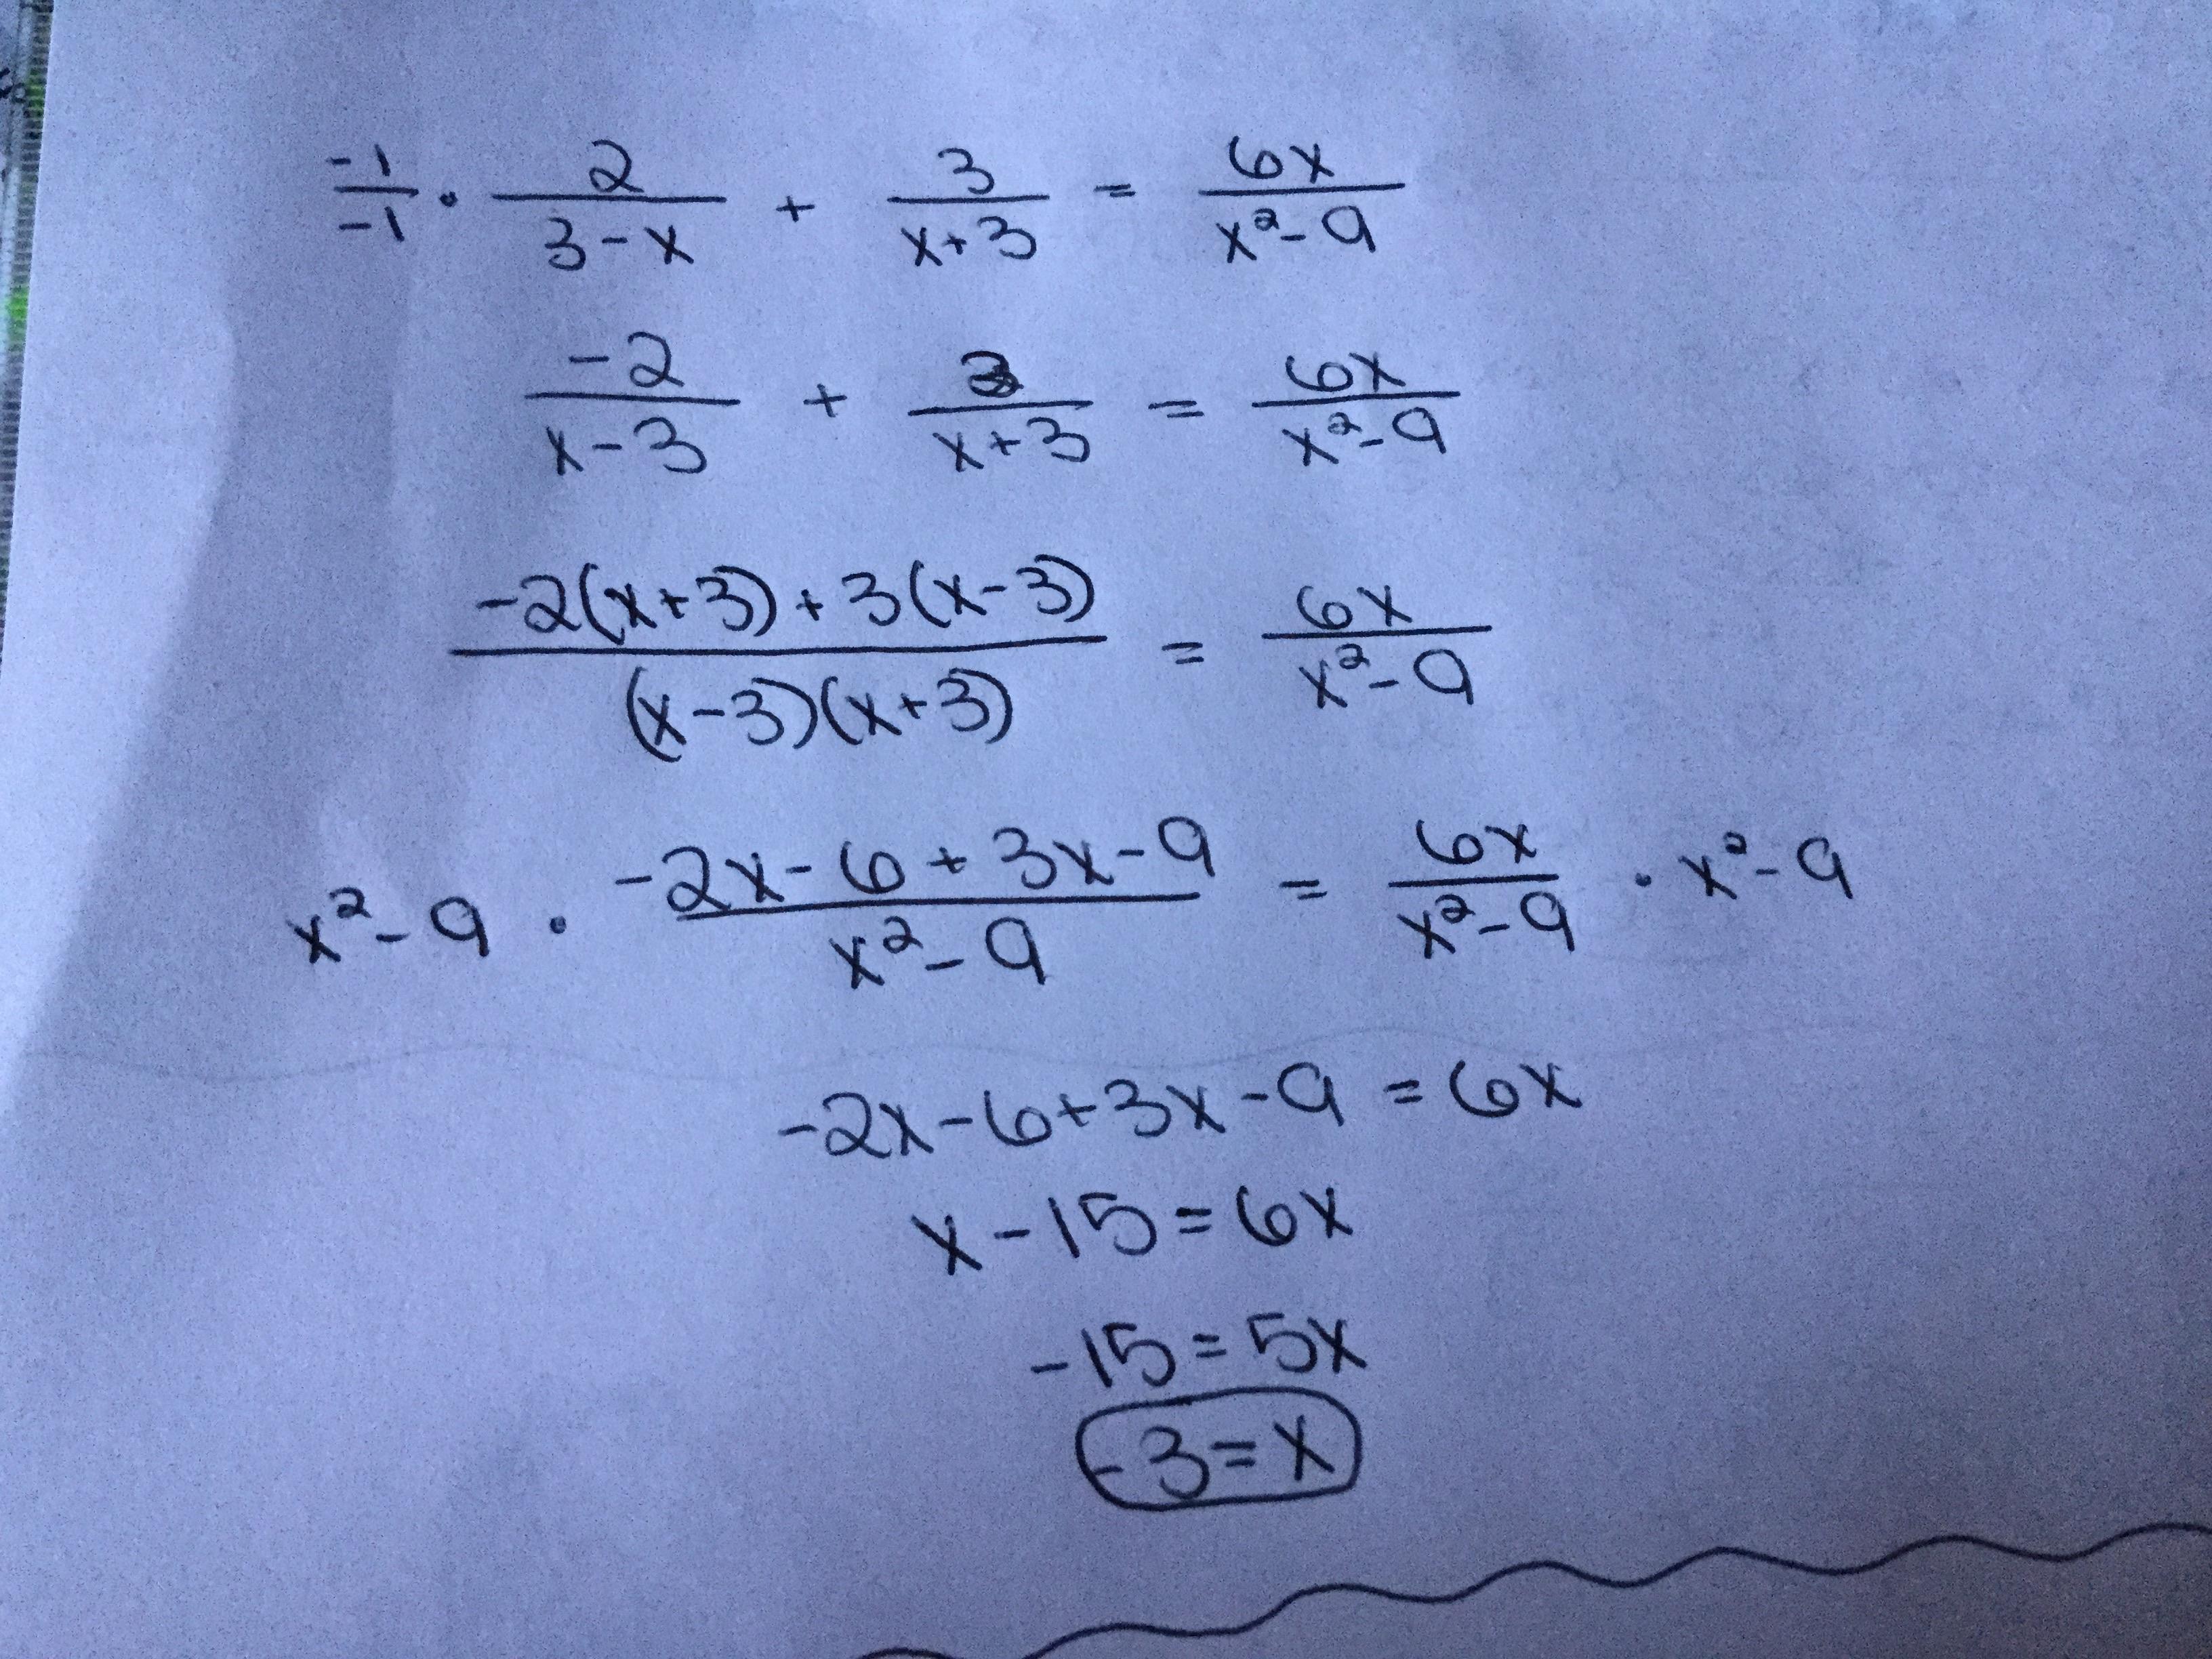 -1/-1 · 2/(3-x) + 3/(x+3) = 6x/(x²-9)
-2/(x-3) + 3/(x+3) = 6x/(x²-9)
(-2(x+3)+3(x-3))/((x-3)(x+3)) = 6x/(x²-9)
x²-9 · (-2x-6+3x-9)/(x²-9) = 6x/(x²-9) · x²-9
-2x-6+3x-9 = 6x
x-15=6x
-15=5x
-3=x